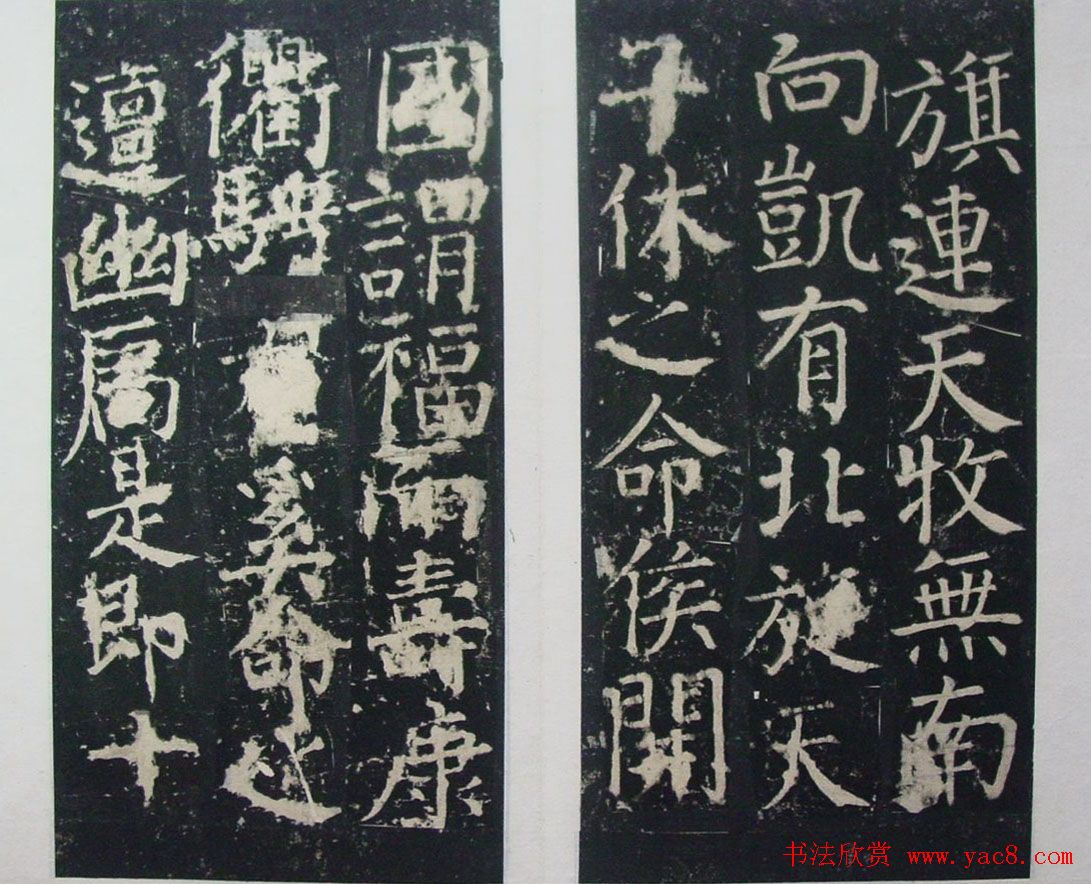 旗連天牧無南
向凱有北旋天
子休之命侯開
國謂福而壽康
衢騁奚命之
邅幽扃是即十
书法欣赏 www.yac8.com